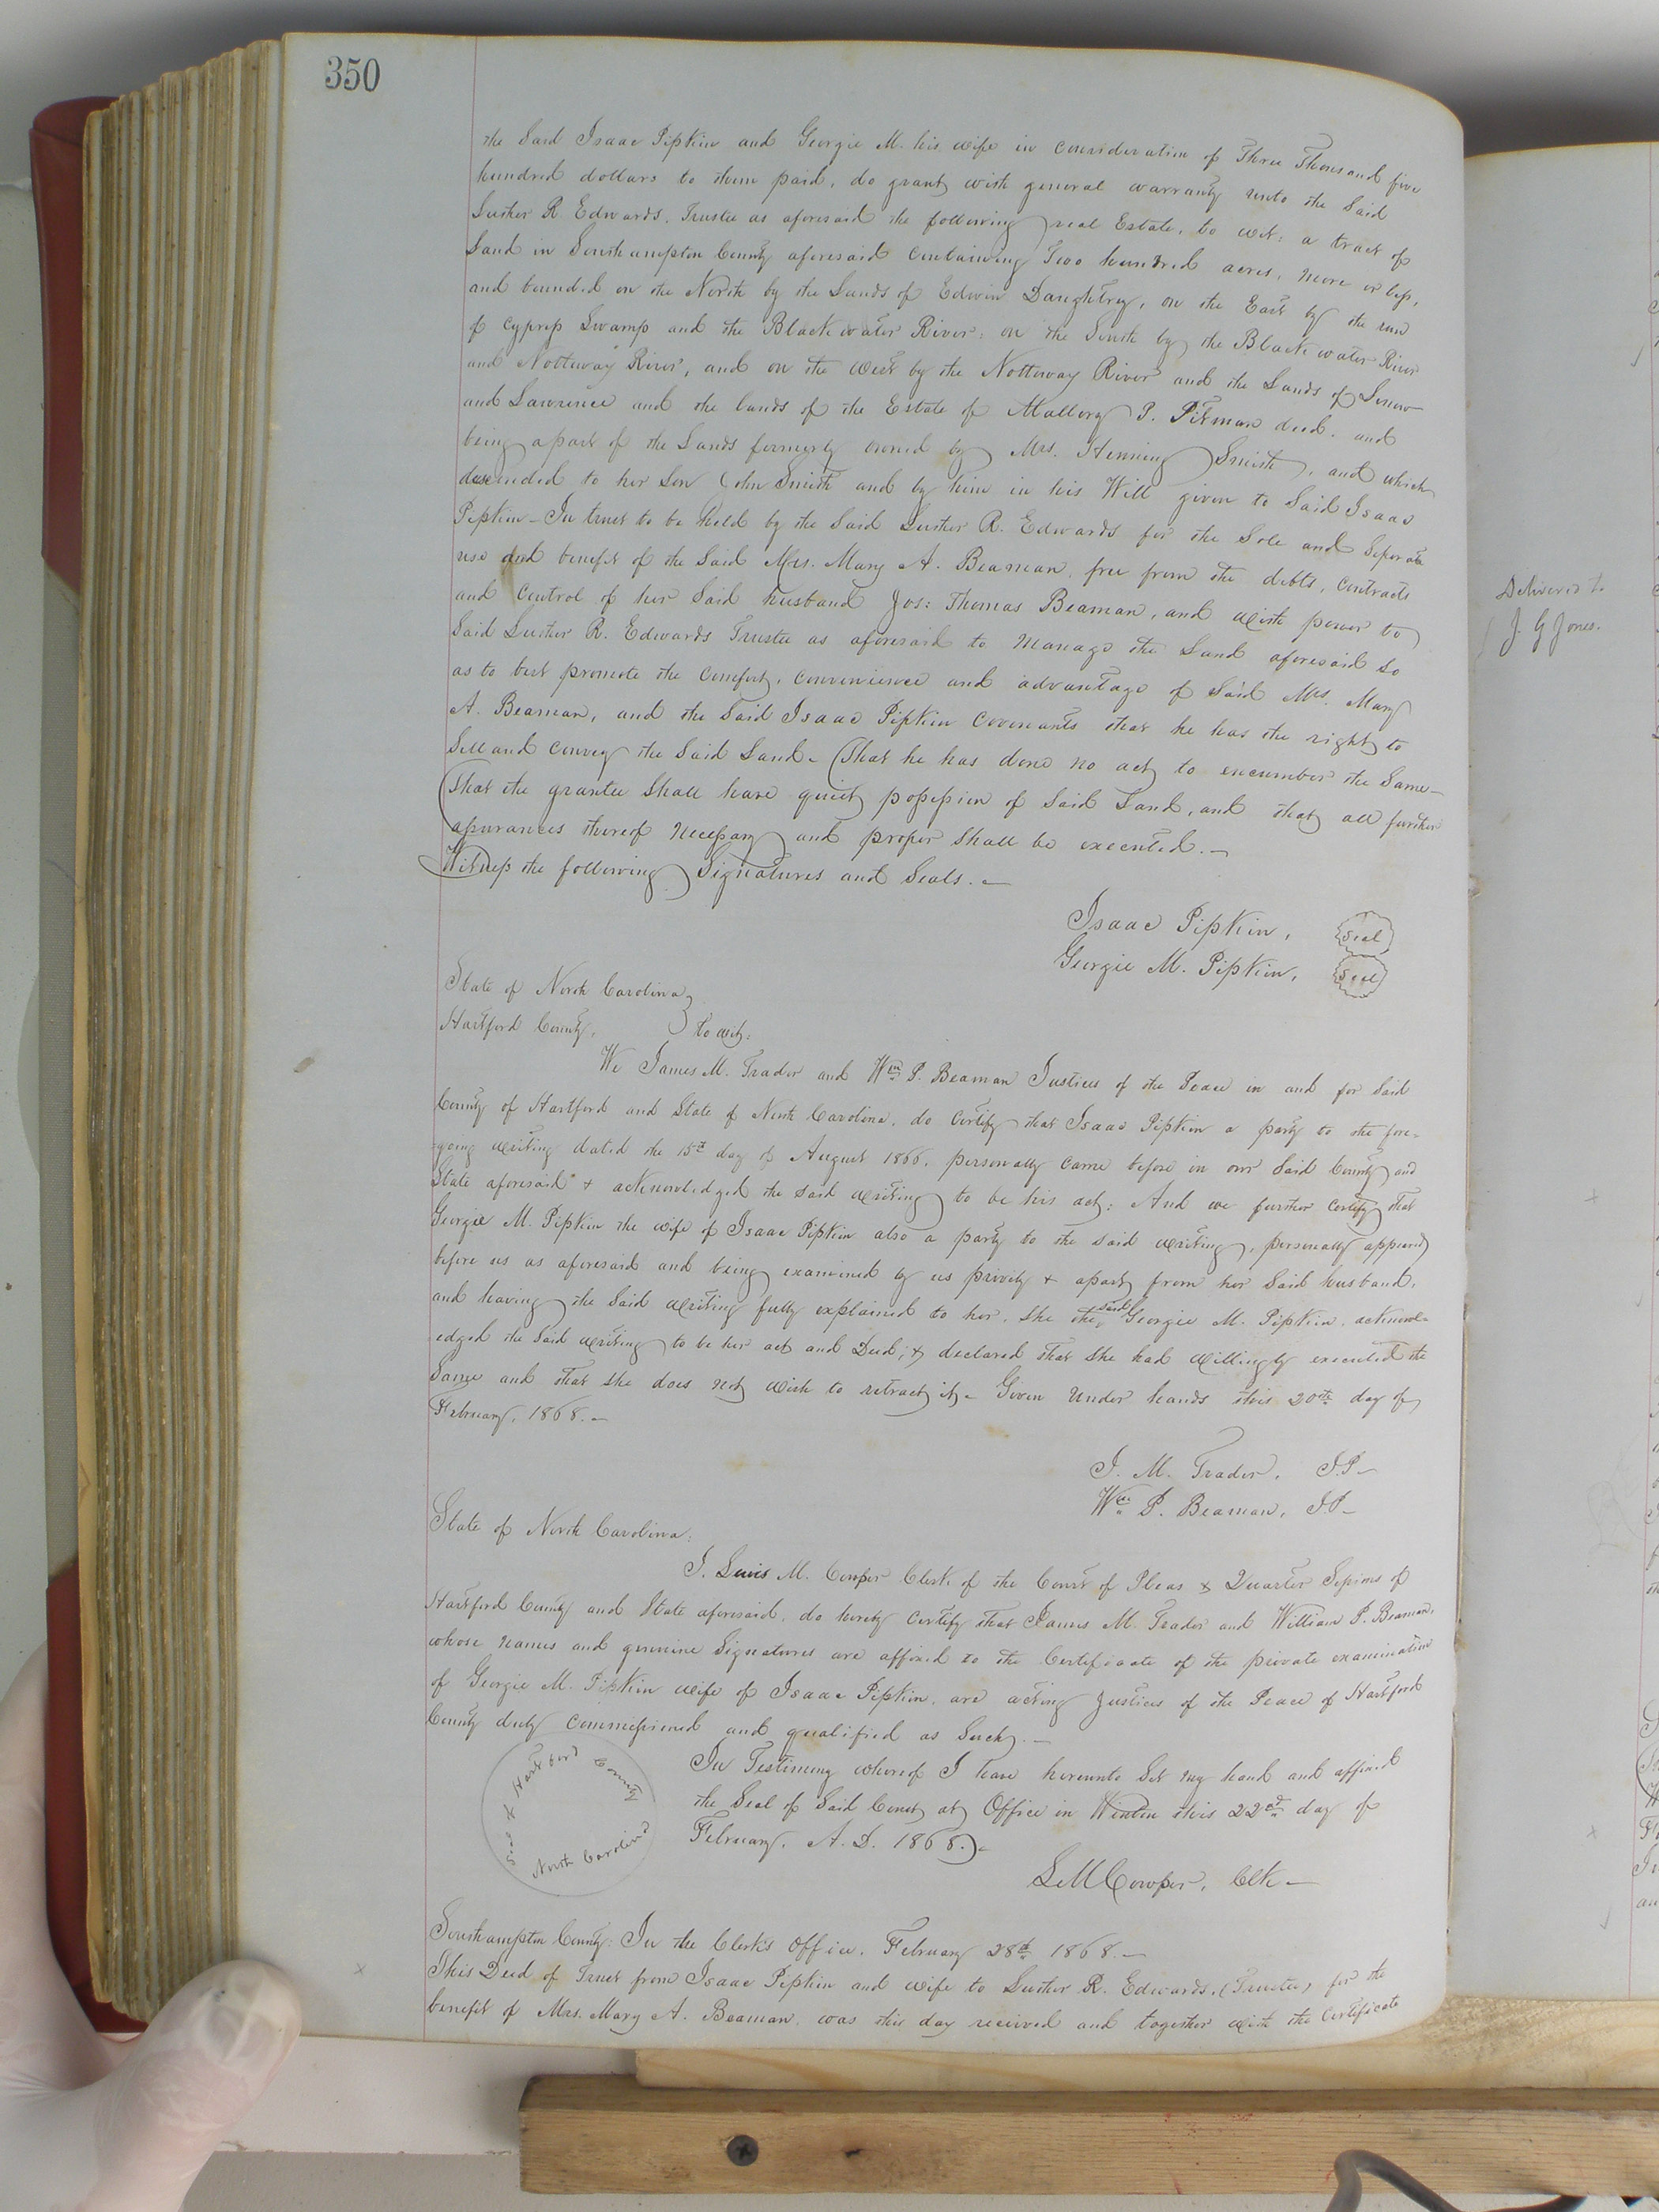 350
the Said Isaac Pipkin and Georgie M. his wife in consideration of Three Thousand five
hundred dollars to them paid, do grant with general warranty unto the Said
Luther R. Edwards, Trustee as aforesaid the following real Estate, to wit: a tract of
Land in Southampton County aforesaid containing Two hundred acres, more or less,
and bounded on the North by the Lands of Edwin Daughtry, on the East by the run
of Cypress Swamp and the Blackwater River: on the South by the Blackwater River
and Nottoway River, and on the West by the Nottoway River and the Lands of
and Lawrence and the lands of the Estate of Mallory P. Pitman decd. and
being a part of the Lands formerly owned by Mrs. Henning Smith, and which
descended to her Son John Smith and by him in his Will given to Said Isaac
Pipkin – In trust to be held by the Said Luther R. Edwards for the Sole and Seperate
use and benefit of the Said Mrs. Mary A. Beaman, free from the debts, contracts
and Control of her Said husband Jos: Thomas Beaman, and with power to
Said Luther R. Edwards Trustee as aforesaid to manage the Land aforesaid So
as to best promote the Comfort, convenience and advantage of Said Mrs. Mary
A. Beaman, and the Said Isaac Pipkin Covenants that he has the right to
Sell and Convey the Said Land – That he has done no act to encumber the Same –
That the grantee Shall have quiet possession of Said Land, and that all further
assurances thereof necessary and proper Shall be executed. –
Witness the following Signatures and Seals. –
Isaac Pipkin, Seal
Georgie M. Pipkin, Seal
State of North Carolina
Hartford County, } to wit:
We James M. Trader and Wm P. Beaman Justices of the Peace in and for Said
County of Hartford and State of North Carolina, do Certify that Isaac Pipkin a party to the fore-
-going writing dated the 15th day of August 1866, personally came before in our Said County and
State aforesaid & acknowledged the said writing to be his act: And we further Certify that
Georgie M. Pipkin the wife of Isaac Pipkin also a party to the said writing, personally appeared
before us as aforesaid and being examined by us privily & apart from her Said husband,
and having the Said writing fully explained to her, She the said Georgie M. Pipkin, acknowl-
edged the Said writing to be her act and Deed; & declared that She had willingly executed the
Same and that She does not wish to retract it – Given under hands this 20th day of
February, 1868. –
J. M. Trader, J.P –
Wm P. Beaman, J.P –
State of North Carolina:
I, Lewis M. Cowper Clerk of the Court of Pleas & Quarter Sessions of
Hartford County and State aforesaid, do hereby Certify that James M. Trader and William P. Beaman,
whose names and genuine Signatures are affixed to the Certificate of the private examination
of Georgie M. Pipkin wife of Isaac Pipkin, are acting Justices of the Peace of Hartford
County duly commissioned and qualified as Such. –
In Testimony whereof I have hereunto Set my hand and affixed
the Seal of Said Court at Office in Winton this 22nd day of
February, A. D. 1868. –
Seal of Hartford County
North Carolina
L M Cowper, Clk –
Southampton County: In the Clerk's Office, February 28th 1868. –
This Deed of Trust from Isaac Pipkin and wife to Luther R. Edwards, (Trustee) for the
benefit of Mrs. Mary A. Beaman, was this day received and together with the Certificate
Delivered to
J. G. Jones.